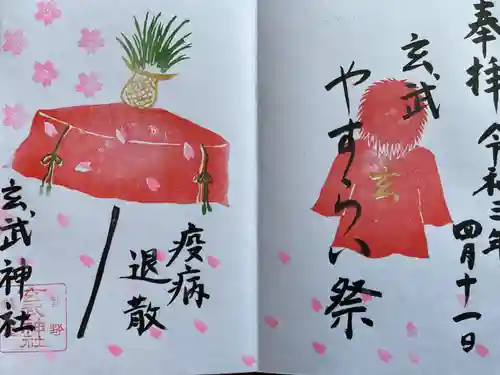 奉拝 令和三年
四月十一日
玄武
やすらい祭
玄
疫病
退散
玄武神社